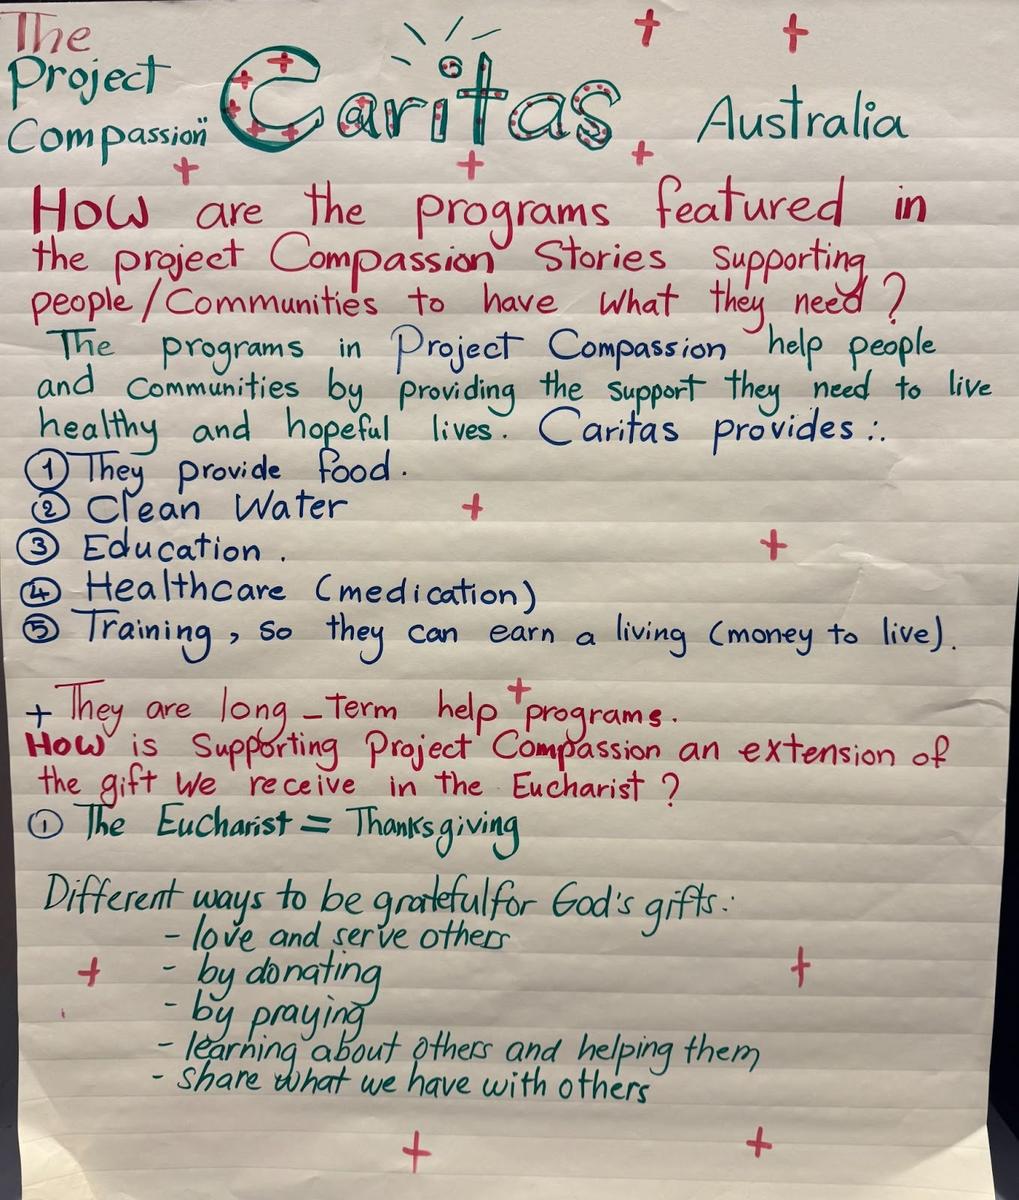 The
Project
Compassion"
Caritas
Australia
How are the programs featured in
the project Compassion Stories supporting
people/Communities to have what they need?
The programs in Project Compassion help people
and communities by providing the support they need to live
healthy and hopeful lives. Caritas provides:.
① They provide food.
② Clean Water
③ Education.
④ Healthcare (medication)
⑤ Training, so they can earn a living (money to live).
+ They are long-term help programs.
How is Supporting Project Compassion an extension of
the gift we receive in the Eucharist?
① The Eucharist = Thanksgiving
Different ways to be grateful for God's gifts:
- love and serve others
- by donating
- by praying
- learning about others and helping them
- share what we have with others